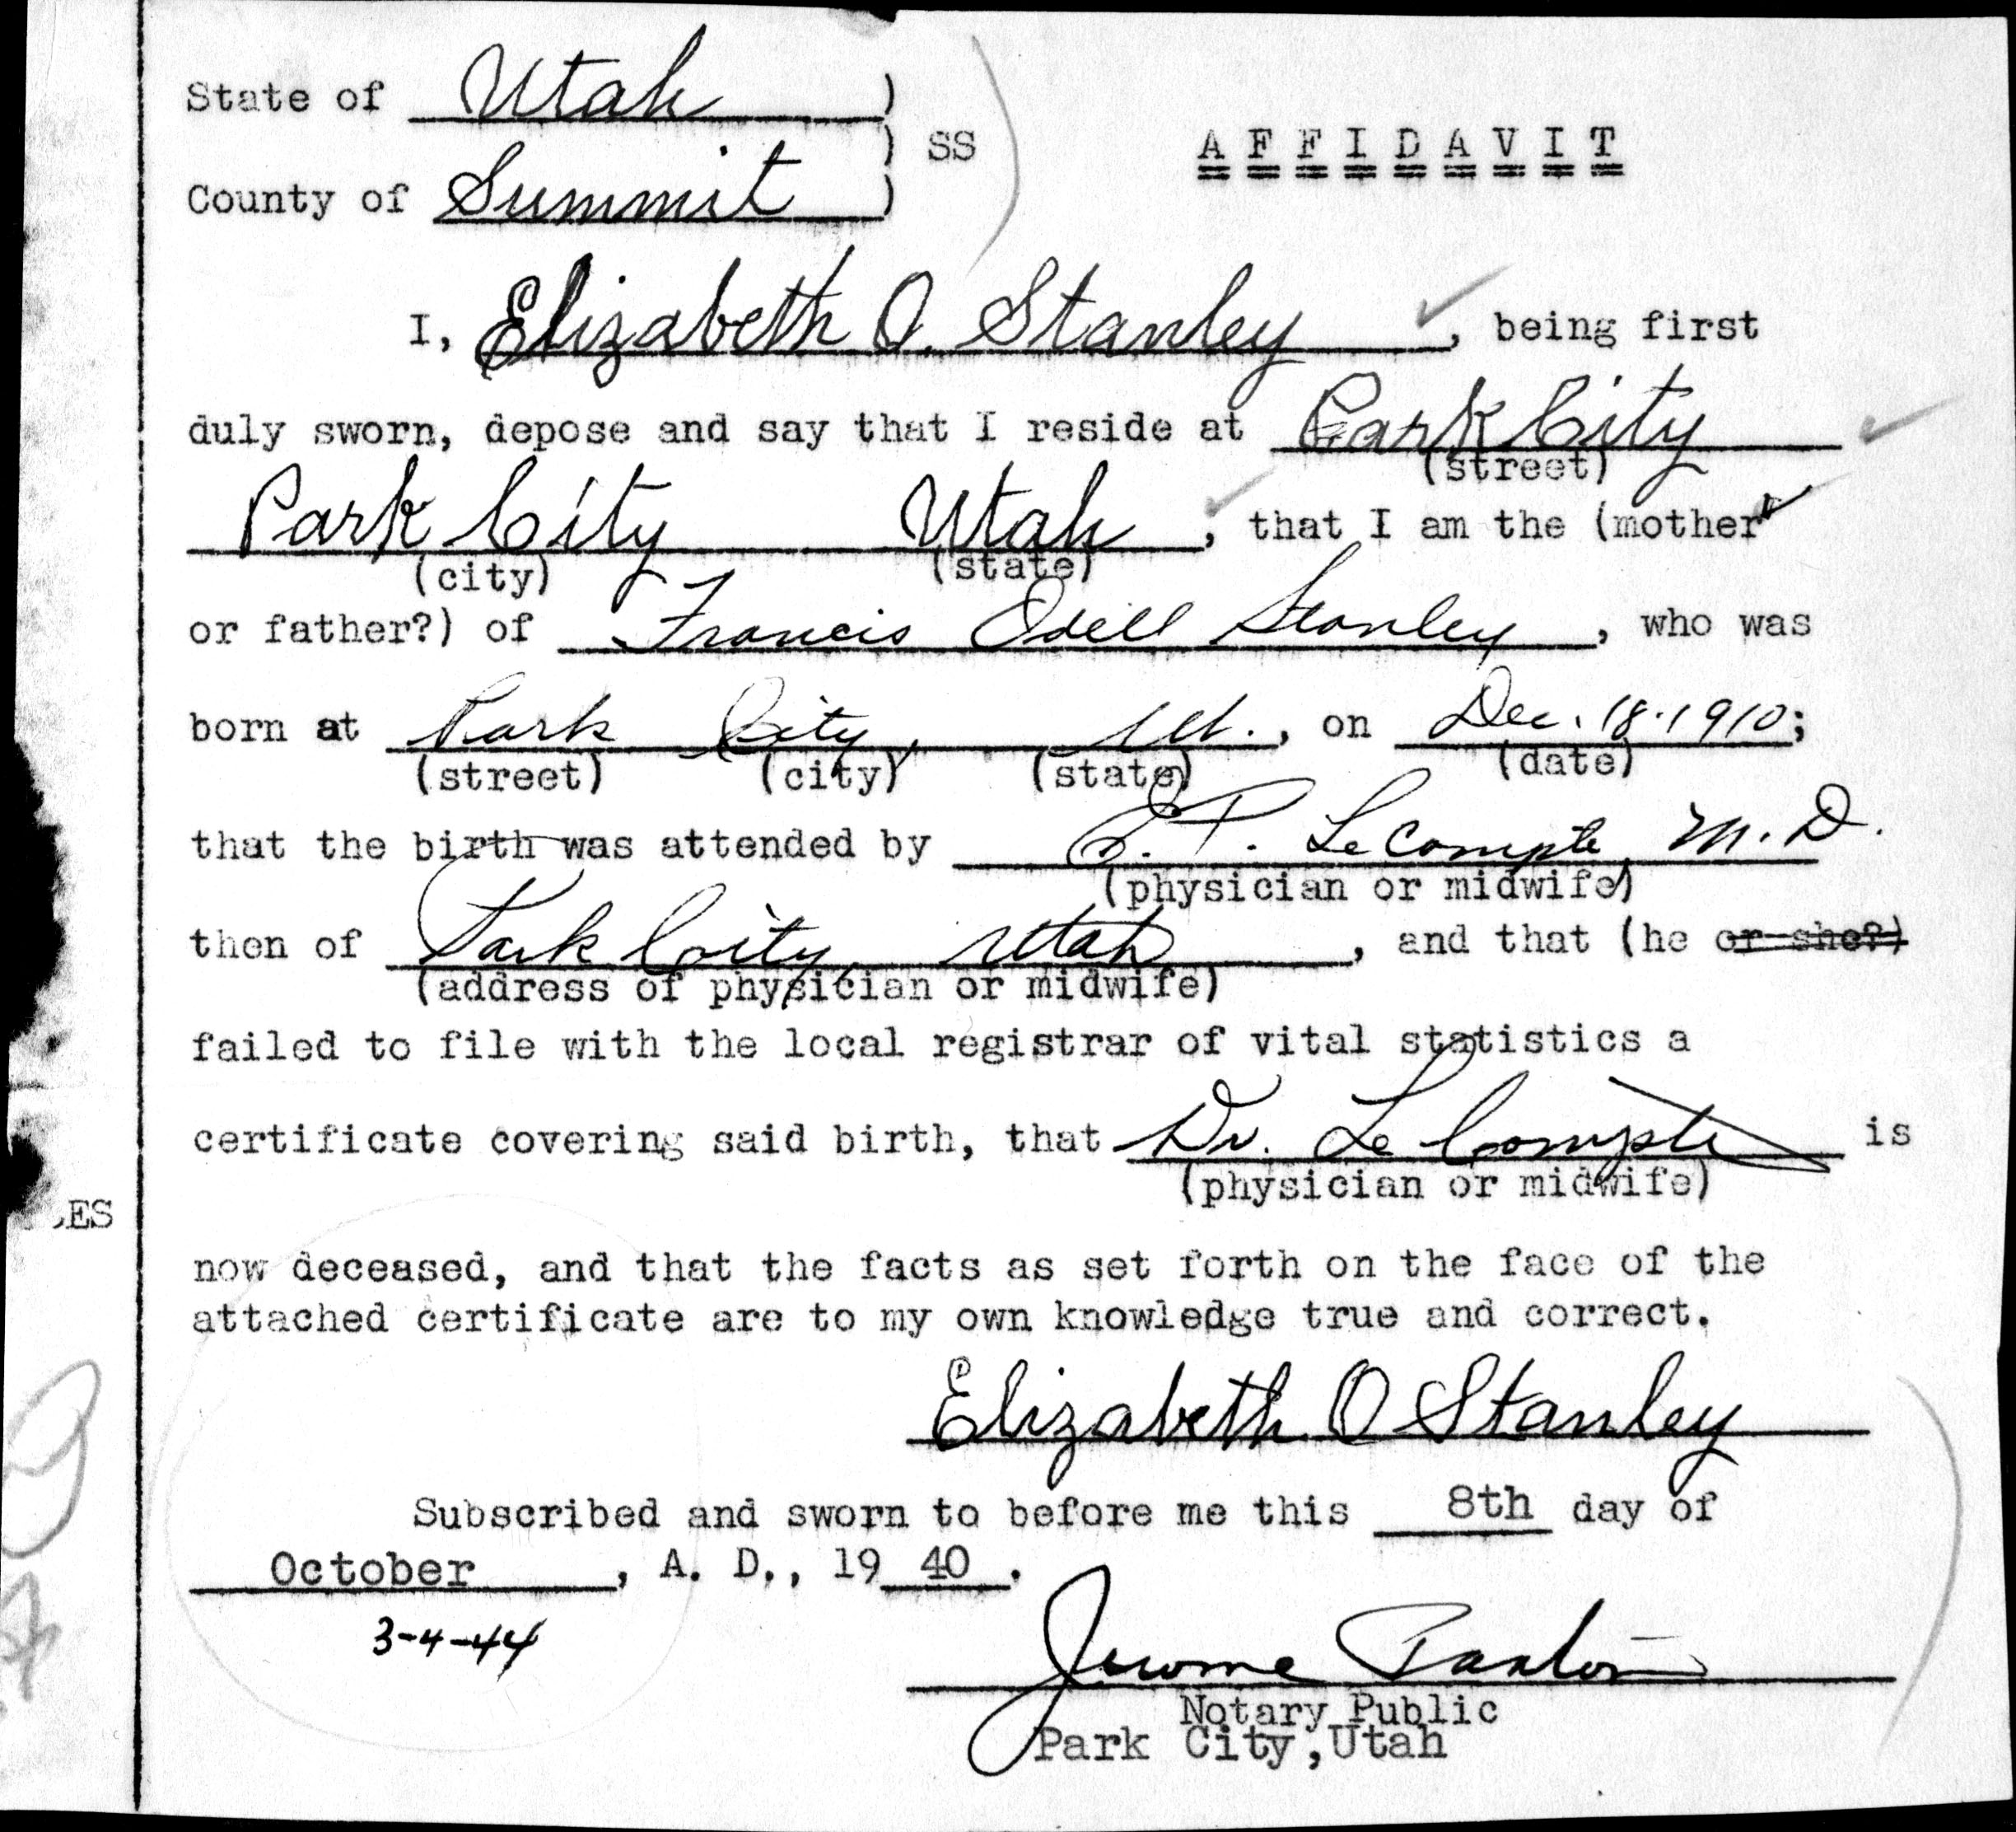 State of Utah )
) SS
A F F I D A V I T
County of Summit )
I, Elizabeth O. Stanley, being first
duly sworn, depose and say that I reside at Park City
(street)
Park City Utah, that I am the (mother ✓
(city) (state)
or father?) of Francis Odell Stanley, who was
born at Park City, Ut., on Dec. 18. 1910;
(street) (city) (state) (date)
that the birth was attended by E. P. LeCompte, M. D.
(physician or midwife)
then of Park City, Utah, and that (he or she?)
(address of physician or midwife)
failed to file with the local registrar of vital statistics a
certificate covering said birth, that Dr. Le Compte is
(physician or midwife)
now deceased, and that the facts as set forth on the face of the
attached certificate are to my own knowledge true and correct.
Elizabeth O Stanley
Subscribed and sworn to before me this 8th day of
October, A. D., 19 40.
3-4-44
Jerome Paxton
Notary Public
Park City, Utah